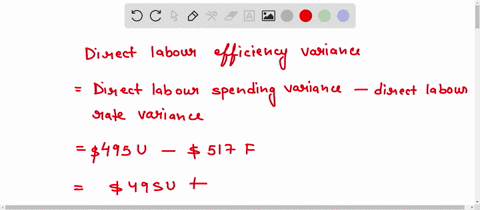 Direct labour efficiency variance
= Direct labour spending variance — direct labour
rate variance
= $495 U — $ 517 F
= $495U +